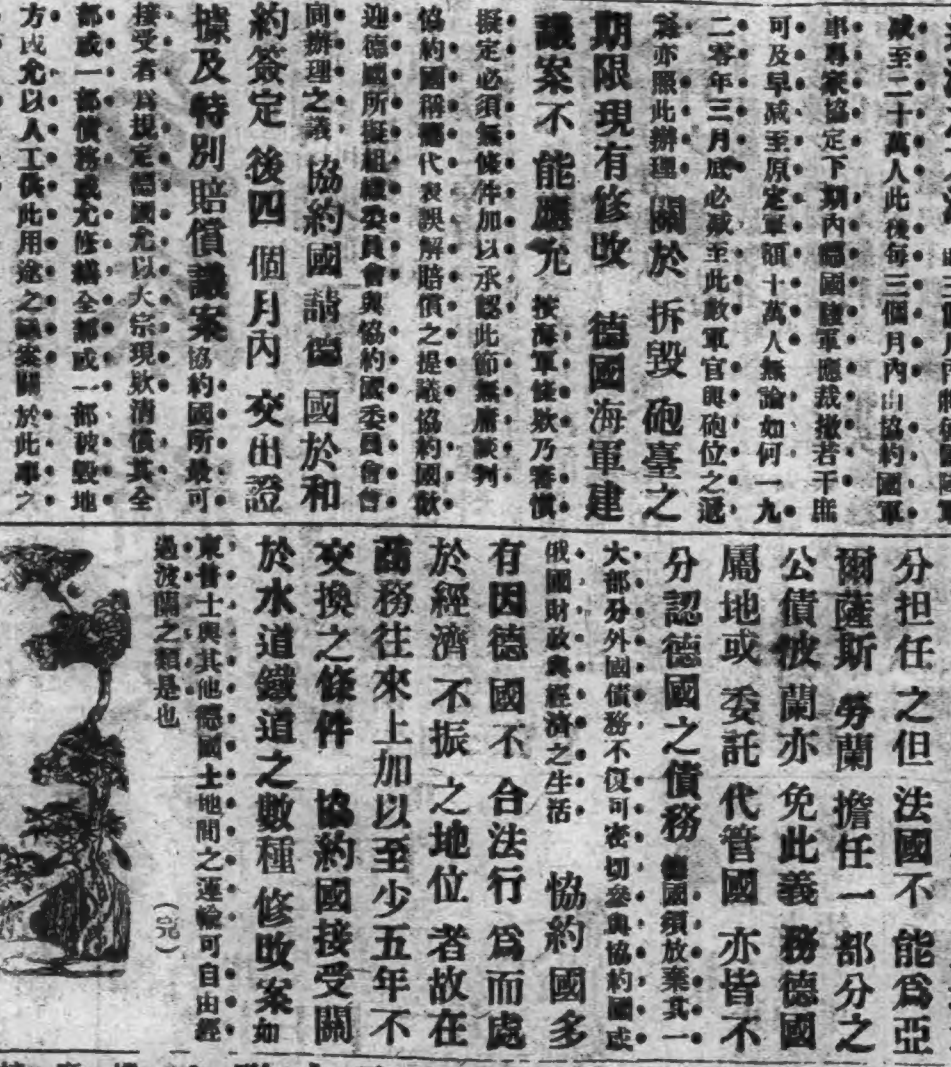 減至二十萬人此後每三個月內由協約國軍
事專家協定下期內德國陸軍應裁撤若干庶
可及早減至原定軍額十萬人無論如何一九
二零年三月底必減至此數軍官與砲位之遞
減亦照此辦理 關於拆毀砲臺之
期限現有修改 德國海軍建
議案不能應允 按海軍條款乃審慎
擬定必須無條件加以承認此節無庸談判
協約國稱德代表誤解賠償之提議協約國歡
迎德國所擬組織委員會與協約國委員會會
同辦理之議 協約國請德國於和
約簽定後四個月內交出證
據及特別賠償議案 協約國所最可
接受者為規定德國允以大宗現款清償其全
部或一部債務或允修繕全部或一部被毀地
方或允以人工供此用途之議案關於此事之
分担任之但法國不能為亞
爾薩斯勞蘭擔任一部分之
公債波蘭亦免此義務德國
屬地或委託代管國亦皆不
分認德國之債務 德國須放棄其一
大部分外國債務不復可密切參與協約國或
俄國財政與經濟之生活 協約國多
有因德國不合法行為而處
於經濟不振之地位者故在
商務往來上加以至少五年不
交換之條件 協約國接受關
於水道鐵道之數種修改案 如
東普士與其他德國土地間之運輸可自由經
過波蘭之類是也
(完)